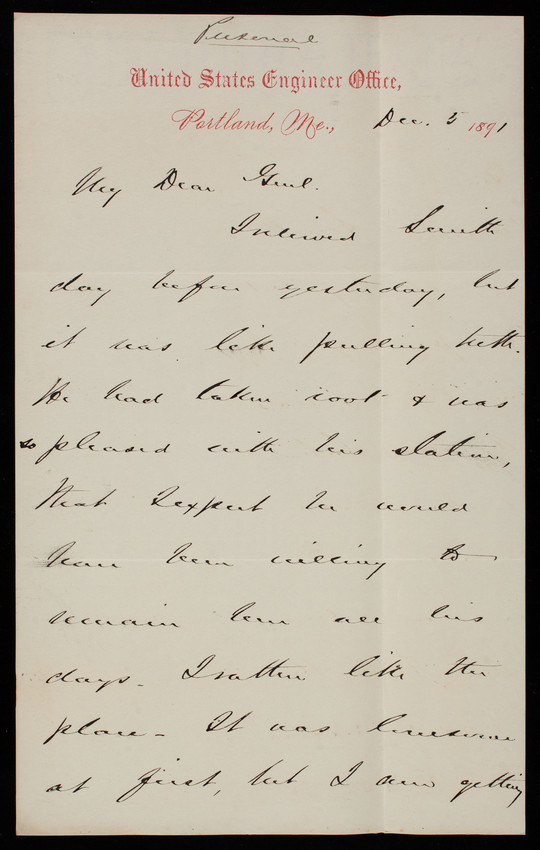 Personal
United States Engineer Office,
Portland, Me., Dec. 5 1891
My Dear Genl.
I relieved Smith
day before yesterday, but
it was like pulling teeth.
He had taken root & was
so pleased with his station,
that I expect he would
have been willing to
remain here all his
days. I rather like the
place - It was lonesome
at first, but I am getting